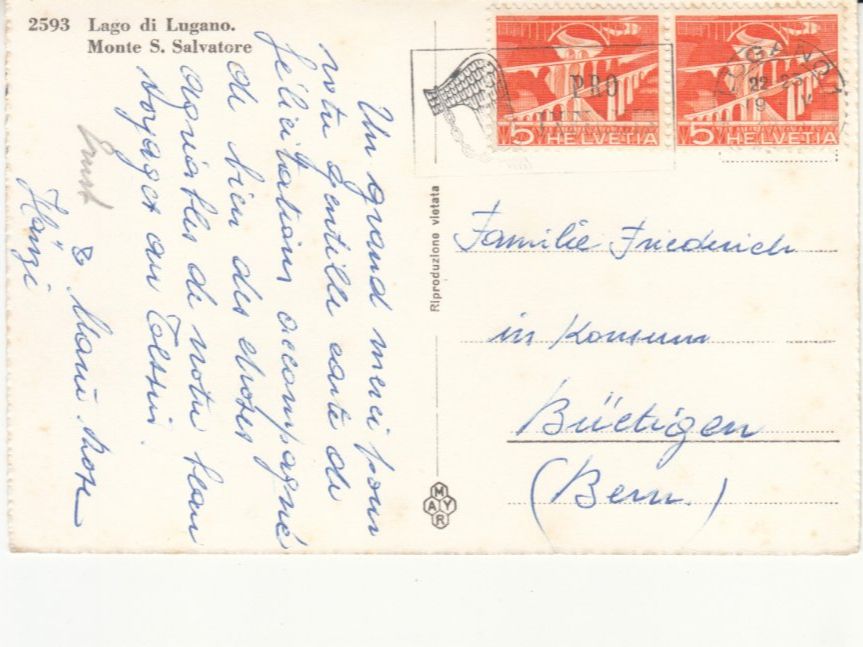 2593 Lago di Lugano.
Monte S. Salvatore
Un grand merci pour
votre gentille carte de
félicitations accompagné
de bien des choses
agréables de notre beau
voyage au Tessin.
Ernst & Marie-Rose
Hänzi
Riproduzione vietata
MAYR
PRO
LUGANO 1
22-23
5 HELVETIA
5 HELVETIA
Familie Friederich
in Konsum
Büetigen
(Bern.)